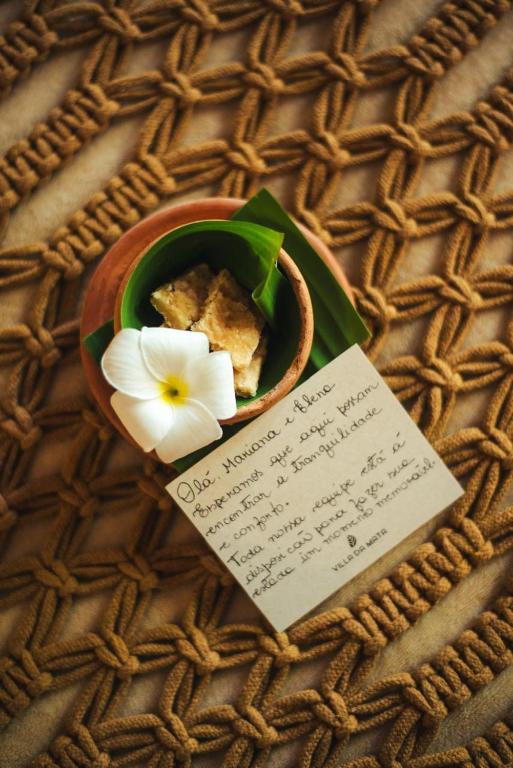 Olá, Mariana e Bleno
Esperamos que aqui possam
encontrar a tranquilidade
e conforto.
Toda nossa equipe está á
disposicaū para fazer sua
estada um momento memorável.
VILA DA MATA